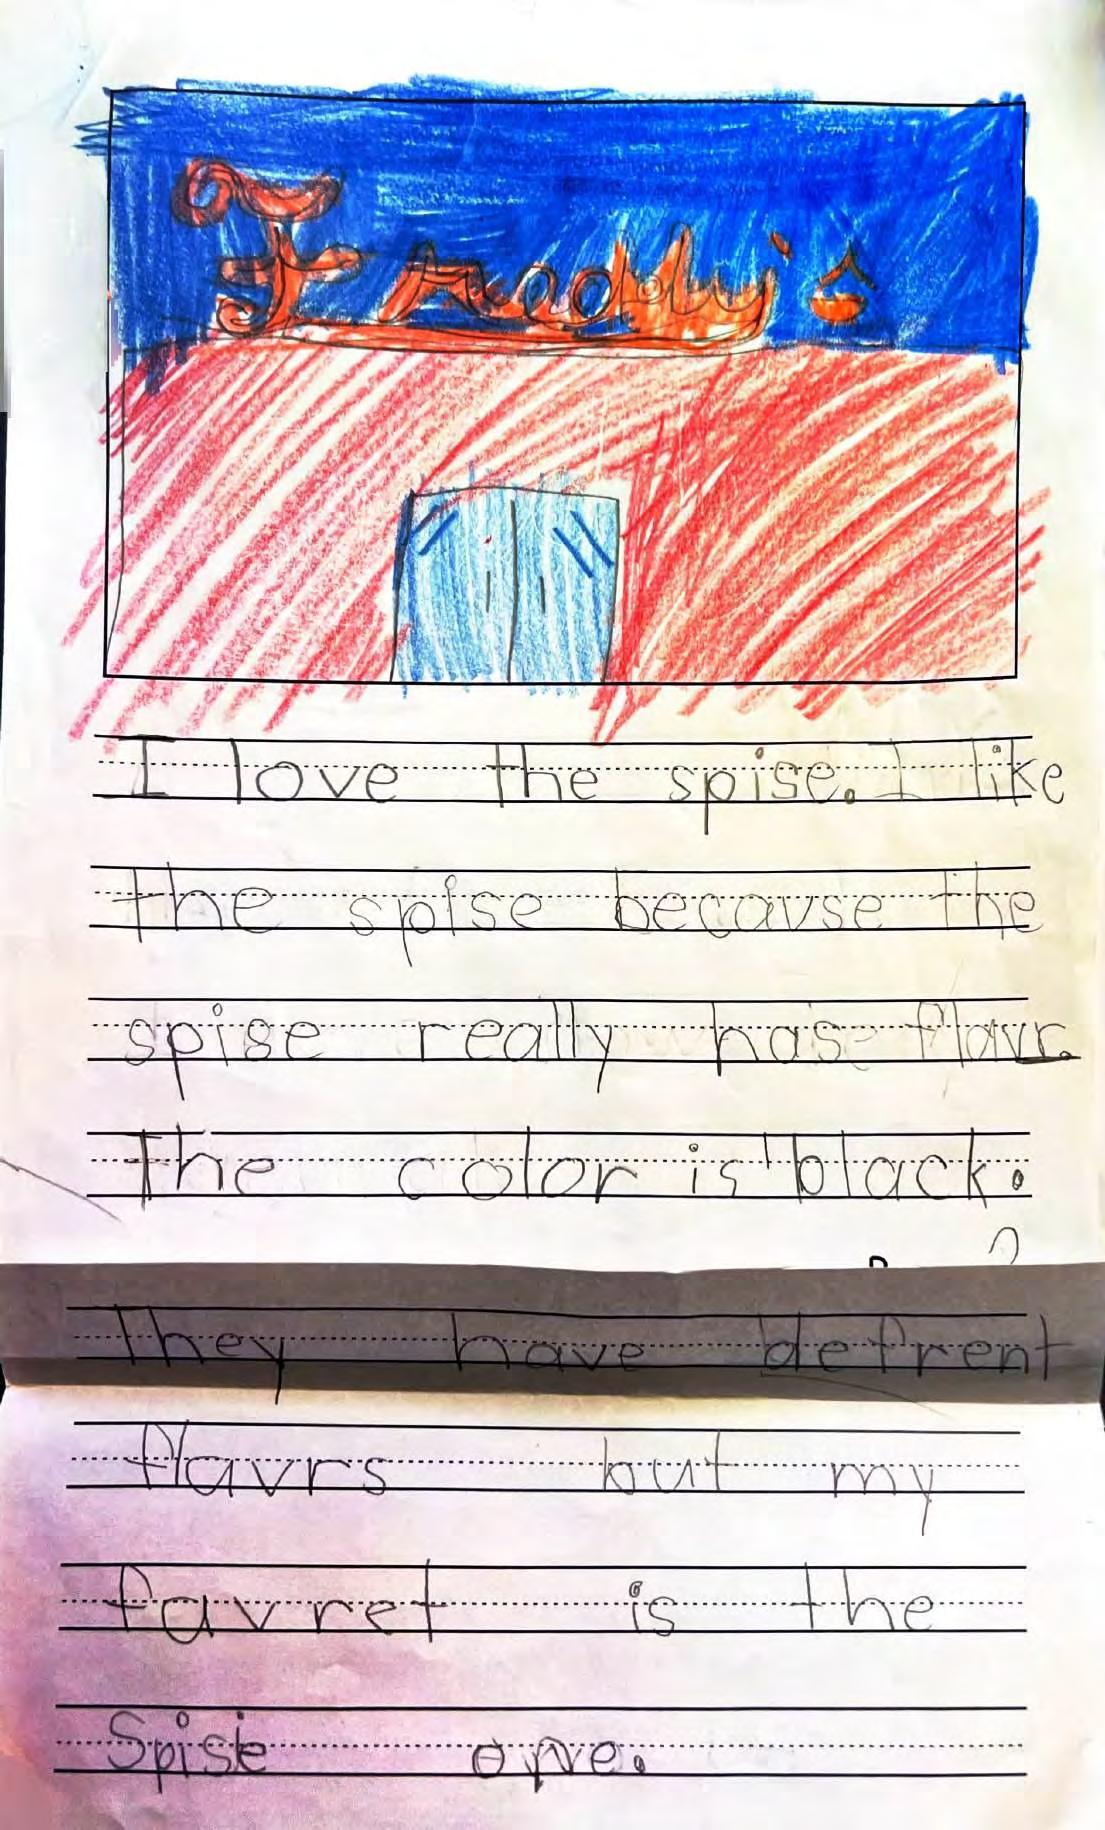 Freddy's
I love the spise. I like
the spise because the
spise really has flavr.
The color is black.
They have defrent
flavrs but my
favret is the
Spise one.